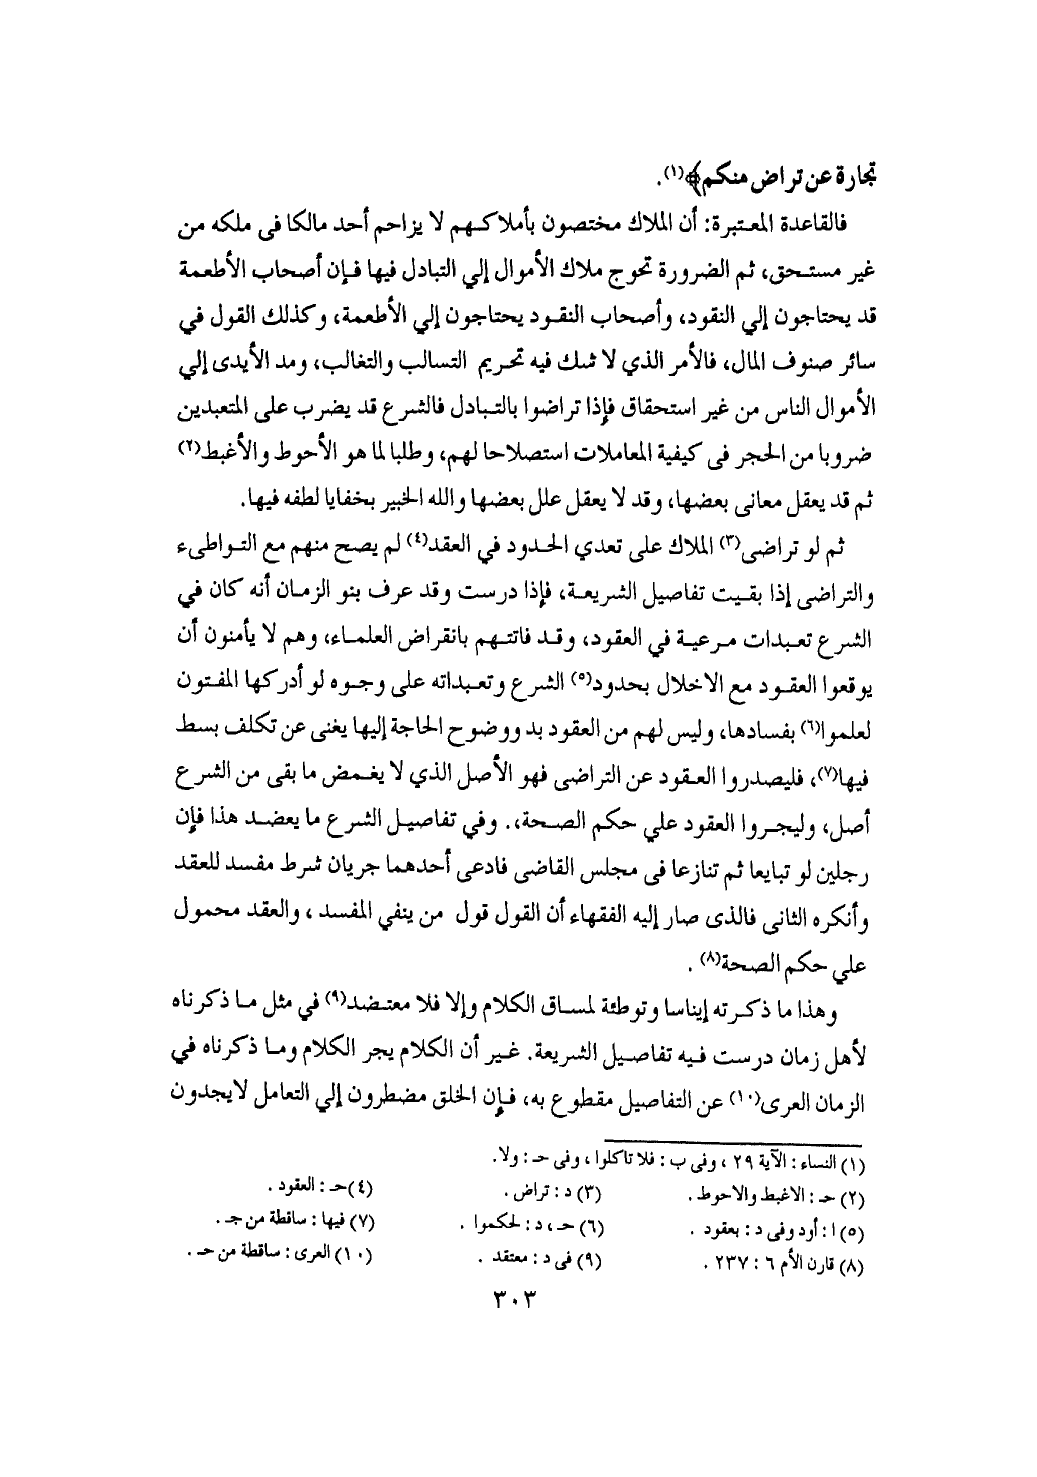 تجارة عن تراض منكم﴾(١).
فالقاعدة المعتبرة: أن الملاك مختصون بأملاكهم لا يزاحم أحد مالكا فى ملكه من
غير مستحق، ثم الضرورة تحوج ملاك الأموال إلي التبادل فيها فإن أصحاب الأطعمة
قد يحتاجون إلي النقود، وأصحاب النقود يحتاجون إلي الأطعمة، وكذلك القول في
سائر صنوف المال، فالأمر الذي لا شك فيه تحريم التسالب والتغالب، ومد الأيدى إلي
الأموال الناس من غير استحقاق فإذا تراضوا بالتبادل فالشرع قد يضرب على المتعبدين
ضروبا من الحجر فى كيفية المعاملات استصلاحا لهم، وطلبا لما هو الأحوط والأغبط(٢)
ثم قد يعقل معانى بعضها، وقد لا يعقل علل بعضها والله الخبير بخفايا لطفه فيها.
ثم لو تراضى(٣) الملاك على تعدي الحدود في العقد(٤) لم يصح منهم مع التواطىء
والتراضى إذا بقيت تفاصيل الشريعة، فإذا درست وقد عرف بنو الزمان أنه كان في
الشرع تعبدات مرعية في العقود، وقد فاتتهم بانقراض العلماء، وهم لا يأمنون أن
يوقعوا العقود مع الاخلال بحدود(٥) الشرع وتعبداته على وجوه لو أدركها المفتون
لعلموا(٦) بفسادها، وليس لهم من العقود بد ووضوح الحاجة إليها يغنى عن تكلف بسط
فيها(٧)، فليصدروا العقود عن التراضى فهو الأصل الذي لا يغمض ما بقى من الشرع
أصل، وليجروا العقود علي حكم الصحة،. وفي تفاصيل الشرع ما يعضد هذا فإن
رجلين لو تبايعا ثم تنازعا فى مجلس القاضى فادعى أحدهما جريان شرط مفسد للعقد
وأنكره الثانى فالذى صار إليه الفقهاء أن القول قول من ينفي المفسد ، والعقد محمول
علي حكم الصحة(٨) .
وهذا ما ذكرته إيناسا وتوطئة لمساق الكلام وإلا فلا معتضد(٩) في مثل ما ذكرناه
لأهل زمان درست فيه تفاصيل الشريعة. غير أن الكلام يجر الكلام وما ذكرناه في
الزمان العرى(١٠) عن التفاصيل مقطوع به، فإن الخلق مضطرون إلي التعامل لايجدون
(١) النساء : الآية ٢٩ ، وفى ب : فلا تاكلوا ، وفى حـ : ولا.
(٢) حـ : الاغبط والاحوط . (٣) د : تراض . (٤)حـ : العقود .
(٥) ا : أود وفى د : بعقود . (٦) حـ ، د : لحكموا . (٧) فيها : ساقطة من جـ .
(٨) قارن الأم ٦ : ٢٣٧ . (٩) فى د : معتقد . (١٠) العرى : ساقطة من حـ .
٣٠٣